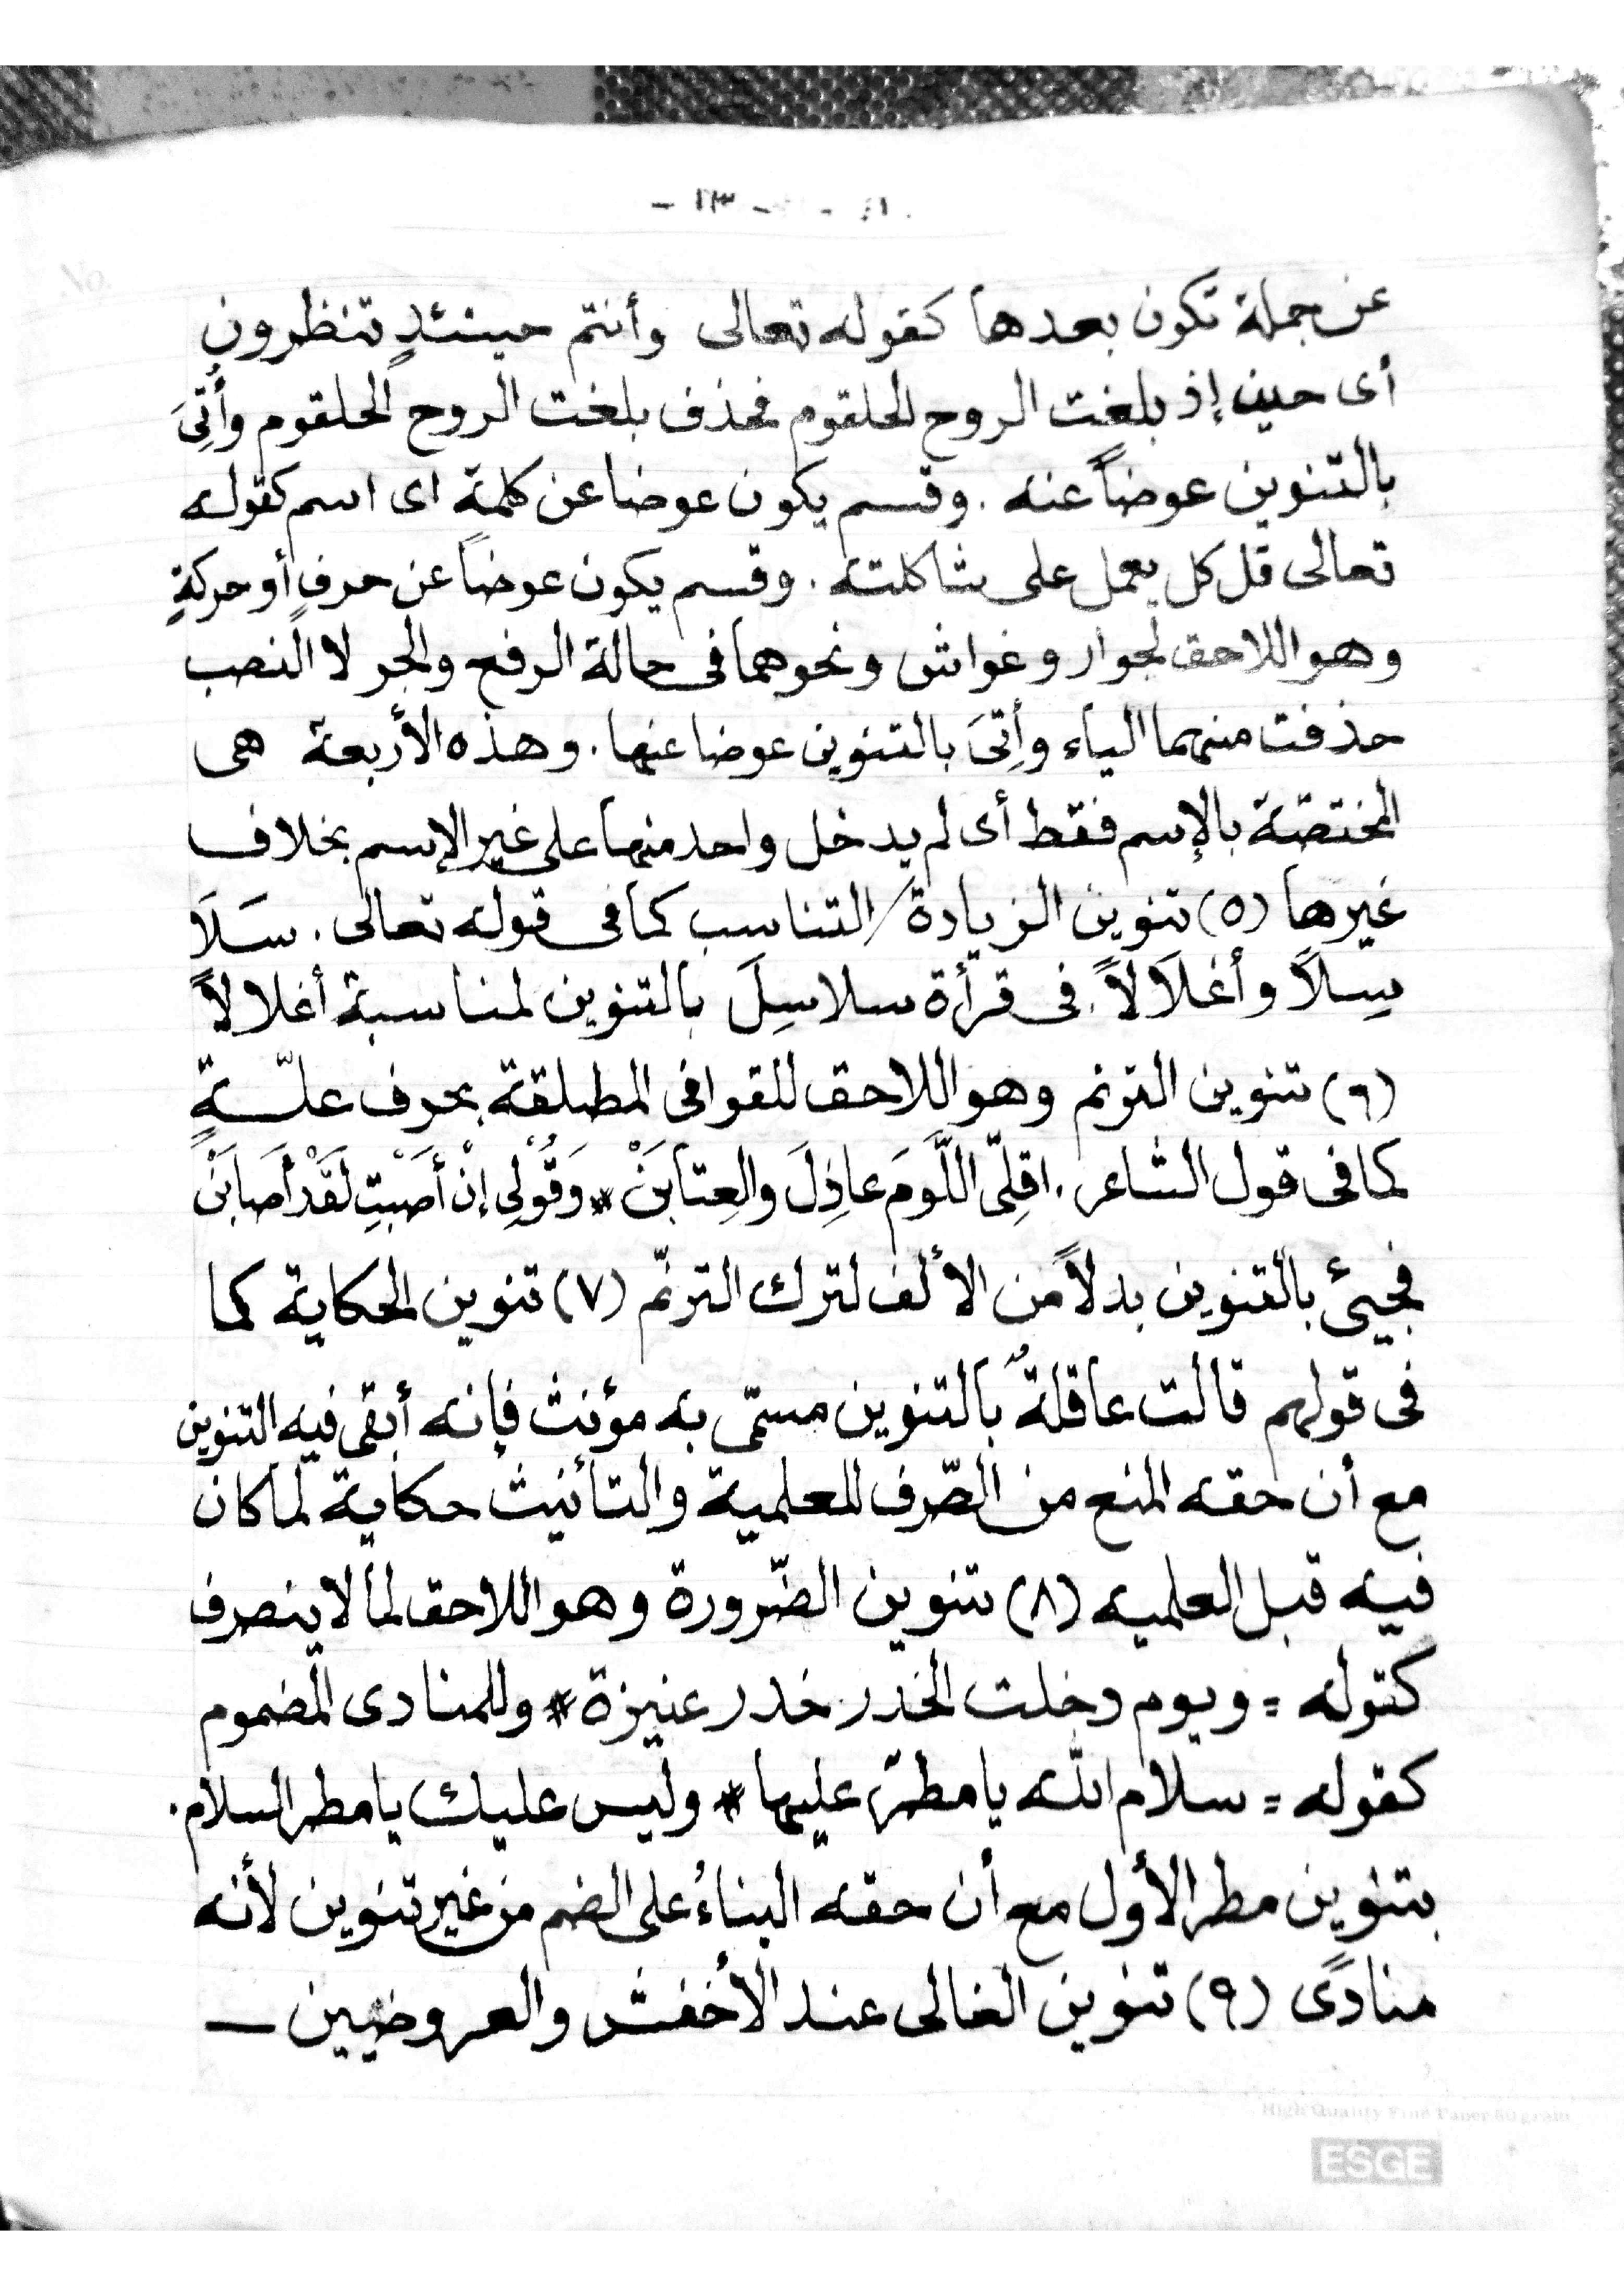 - ١٣ -
عن جملة تكون بعدها كقوله تعالى وأنتم حينئذٍ تنظرون
أى حين إذ بلغت الروح الحلقوم فحذف بلغت الروح الحلقوم وأُتِىَ
بالتنوين عوضاً عنه . وقسم يكون عوضا عن كلمةٍ اى اسم كقوله
تعالى قل كل يعمل على شاكلته . وقسم يكون عوضاً عن حرفٍ أو حركةٍ
وهو اللاحق لجوار وغواش ونحوهما فى حالة الرفع والجر لا النصب
حذفت منهما الياء وأتِىَ بالتنوين عوضا عنها . وهذه الأربعة هى
المختصّة بالإسم فقط أى لم يدخل واحد منها على غير الإسم بخلاف
غيرها (٥) تنوين الزيادة/التناسب كما فى قوله تعالى . سَلَا
سِلاً وأغلَالاً . فى قرأة سلاسِلَ بالتنوين لمناسبة أغلالاً
(٦) تنوين الترنم وهو اللاحق للقوافى المطلقة بحرف علّةٍ
كما فى قول الشاعر . اقلِّى اللَّومَ عاذِلَ والعِتَابَنْ * وَقُوْلِى إنْ أَصَبْتِ لَقَدْ أَصَابَنْ
فجيئ بالتنوين بدلاً من الألف لترك الترنّم (٧) تنوين الحكاية كما
فى قولهم قالت عاقلةٌ بالتنوين مسمّى به مؤنث فإنه أبقى فيه التنوين
مع أن حقه المنع من الصّرف للعلمية والتأنيث حكاية لما كان
فيه قبل العلميه (٨) تنوين الضّرورة وهو اللاحق لما لا ينصرف
كقوله = ويوم دخلت الخدر خدر عنيزة * وللمنادى المضموم
كقوله = سلام الله يا مطرٌ عليها * وليس عليك يا مطر السلام .
بتنوين مطر الأول مع أن حقه البناءُ على الضم من غير تنوين لأنه
منادًى (٩) تنوين الغالى عند الأخفش والعروضيين —
High Quality Fine Paper 60 gram
ESGE